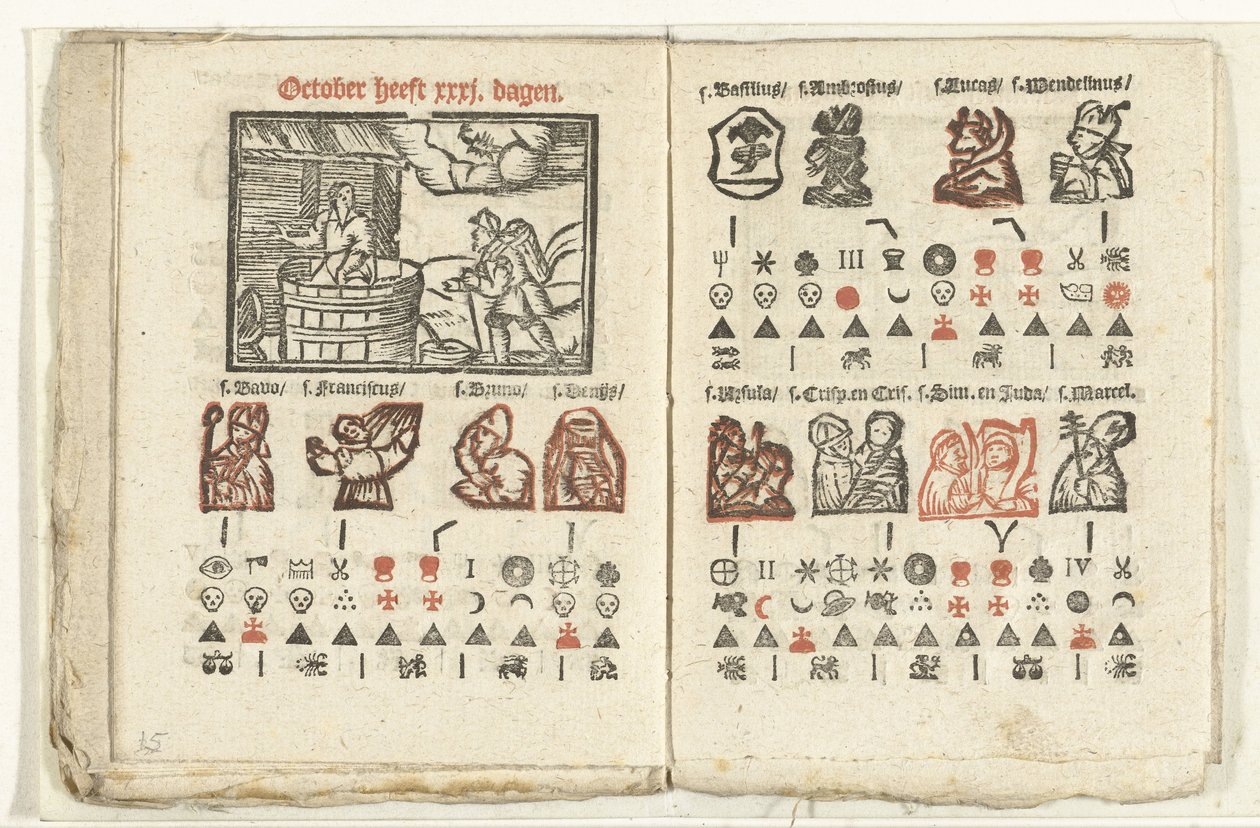 October heeft xxxj. dagen.
s. Bavo/ s. Franciscus/ s. Bruno/ s. Denijs/
I
15
s. Basilius/ s. Ambrosius/ s. Lucas/ s. Wendelinus/
III
s. Ursula/ s. Crisp. en Cris. s. Sim. en Juda/ s. Marcel.
II IV